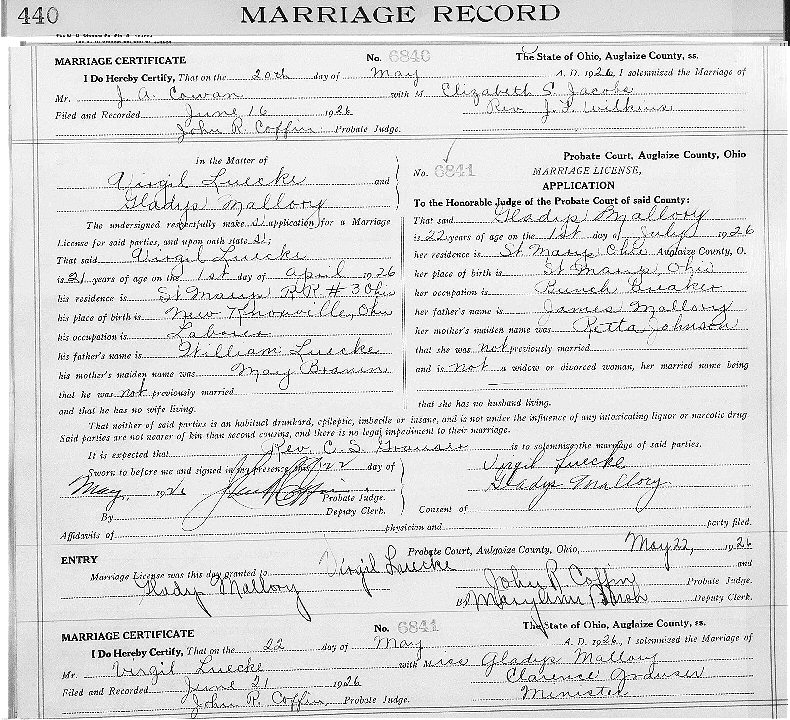 440
MARRIAGE RECORD
MARRIAGE CERTIFICATE No. 6840 The State of Ohio, Auglaize County, ss.
I Do Hereby Certify, That on the 20th day of May A. D. 1926, I solemnized the Marriage of
Mr. J. A. Cowan with Elizabeth S. Jacobs
Filed and Recorded June 16 1926 Rev. J. F. Wilkins
John R. Coffin Probate Judge.
In the Matter of
Virgil Luecke and
Gladys Mallory
The undersigned respectfully make application for a Marriage
License for said parties, and upon oath state;
That said Virgil Luecke
is 21 years of age on the 1st day of April 1926
his residence is St Marys RR # 3 Ohio
his place of birth is New Knoxville, Ohio
his occupation is Laborer
his father's name is William Luecke
his mother's maiden name was May
that he was not previously married
and that he has no wife living.
Probate Court, Auglaize County, Ohio
No. 6841 MARRIAGE LICENSE,
APPLICATION
To the Honorable Judge of the Probate Court of said County:
That said Gladys Mallory
is 22 years of age on the 1st day of July 1926
her residence is St Marys Ohio Auglaize County, O.
her place of birth is St Marys, Ohio
her occupation is Punch
her father's name is James Mallory
her mother's maiden name was Retta Johnson
that she was not previously married
and is not a widow or divorced woman, her married name being
—
that she has no husband living.
That neither of said parties is an habitual drunkard, epileptic, imbecile or insane, and is not under the influence of any intoxicating liquor or narcotic drug
Said parties are not nearer of kin than second cousins, and there is no legal impediment to their marriage.
It is expected that Rev. C. S. Grauser is to solemnize the marriage of said parties.
Sworn to before me and signed in my presence, this 22 day of
May, 1926 Probate Judge.
By Deputy Clerk.
Virgil Luecke
Gladys Mallory
Consent of
Affidavits of physician and party filed.
ENTRY Probate Court, Auglaize County, Ohio, May 22, 1926
Marriage License was this day granted to Virgil Luecke and
Gladys Mallory John R. Coffin Probate Judge.
By Deputy Clerk.
MARRIAGE CERTIFICATE No. 6841 The State of Ohio, Auglaize County, ss.
I Do Hereby Certify, That on the 22 day of May A. D. 1926, I solemnized the Marriage of
Mr. Virgil Luecke with Miss Gladys Mallory
Filed and Recorded June 21 1926 Clarence Grauser
John R. Coffin, Probate Judge. Minister